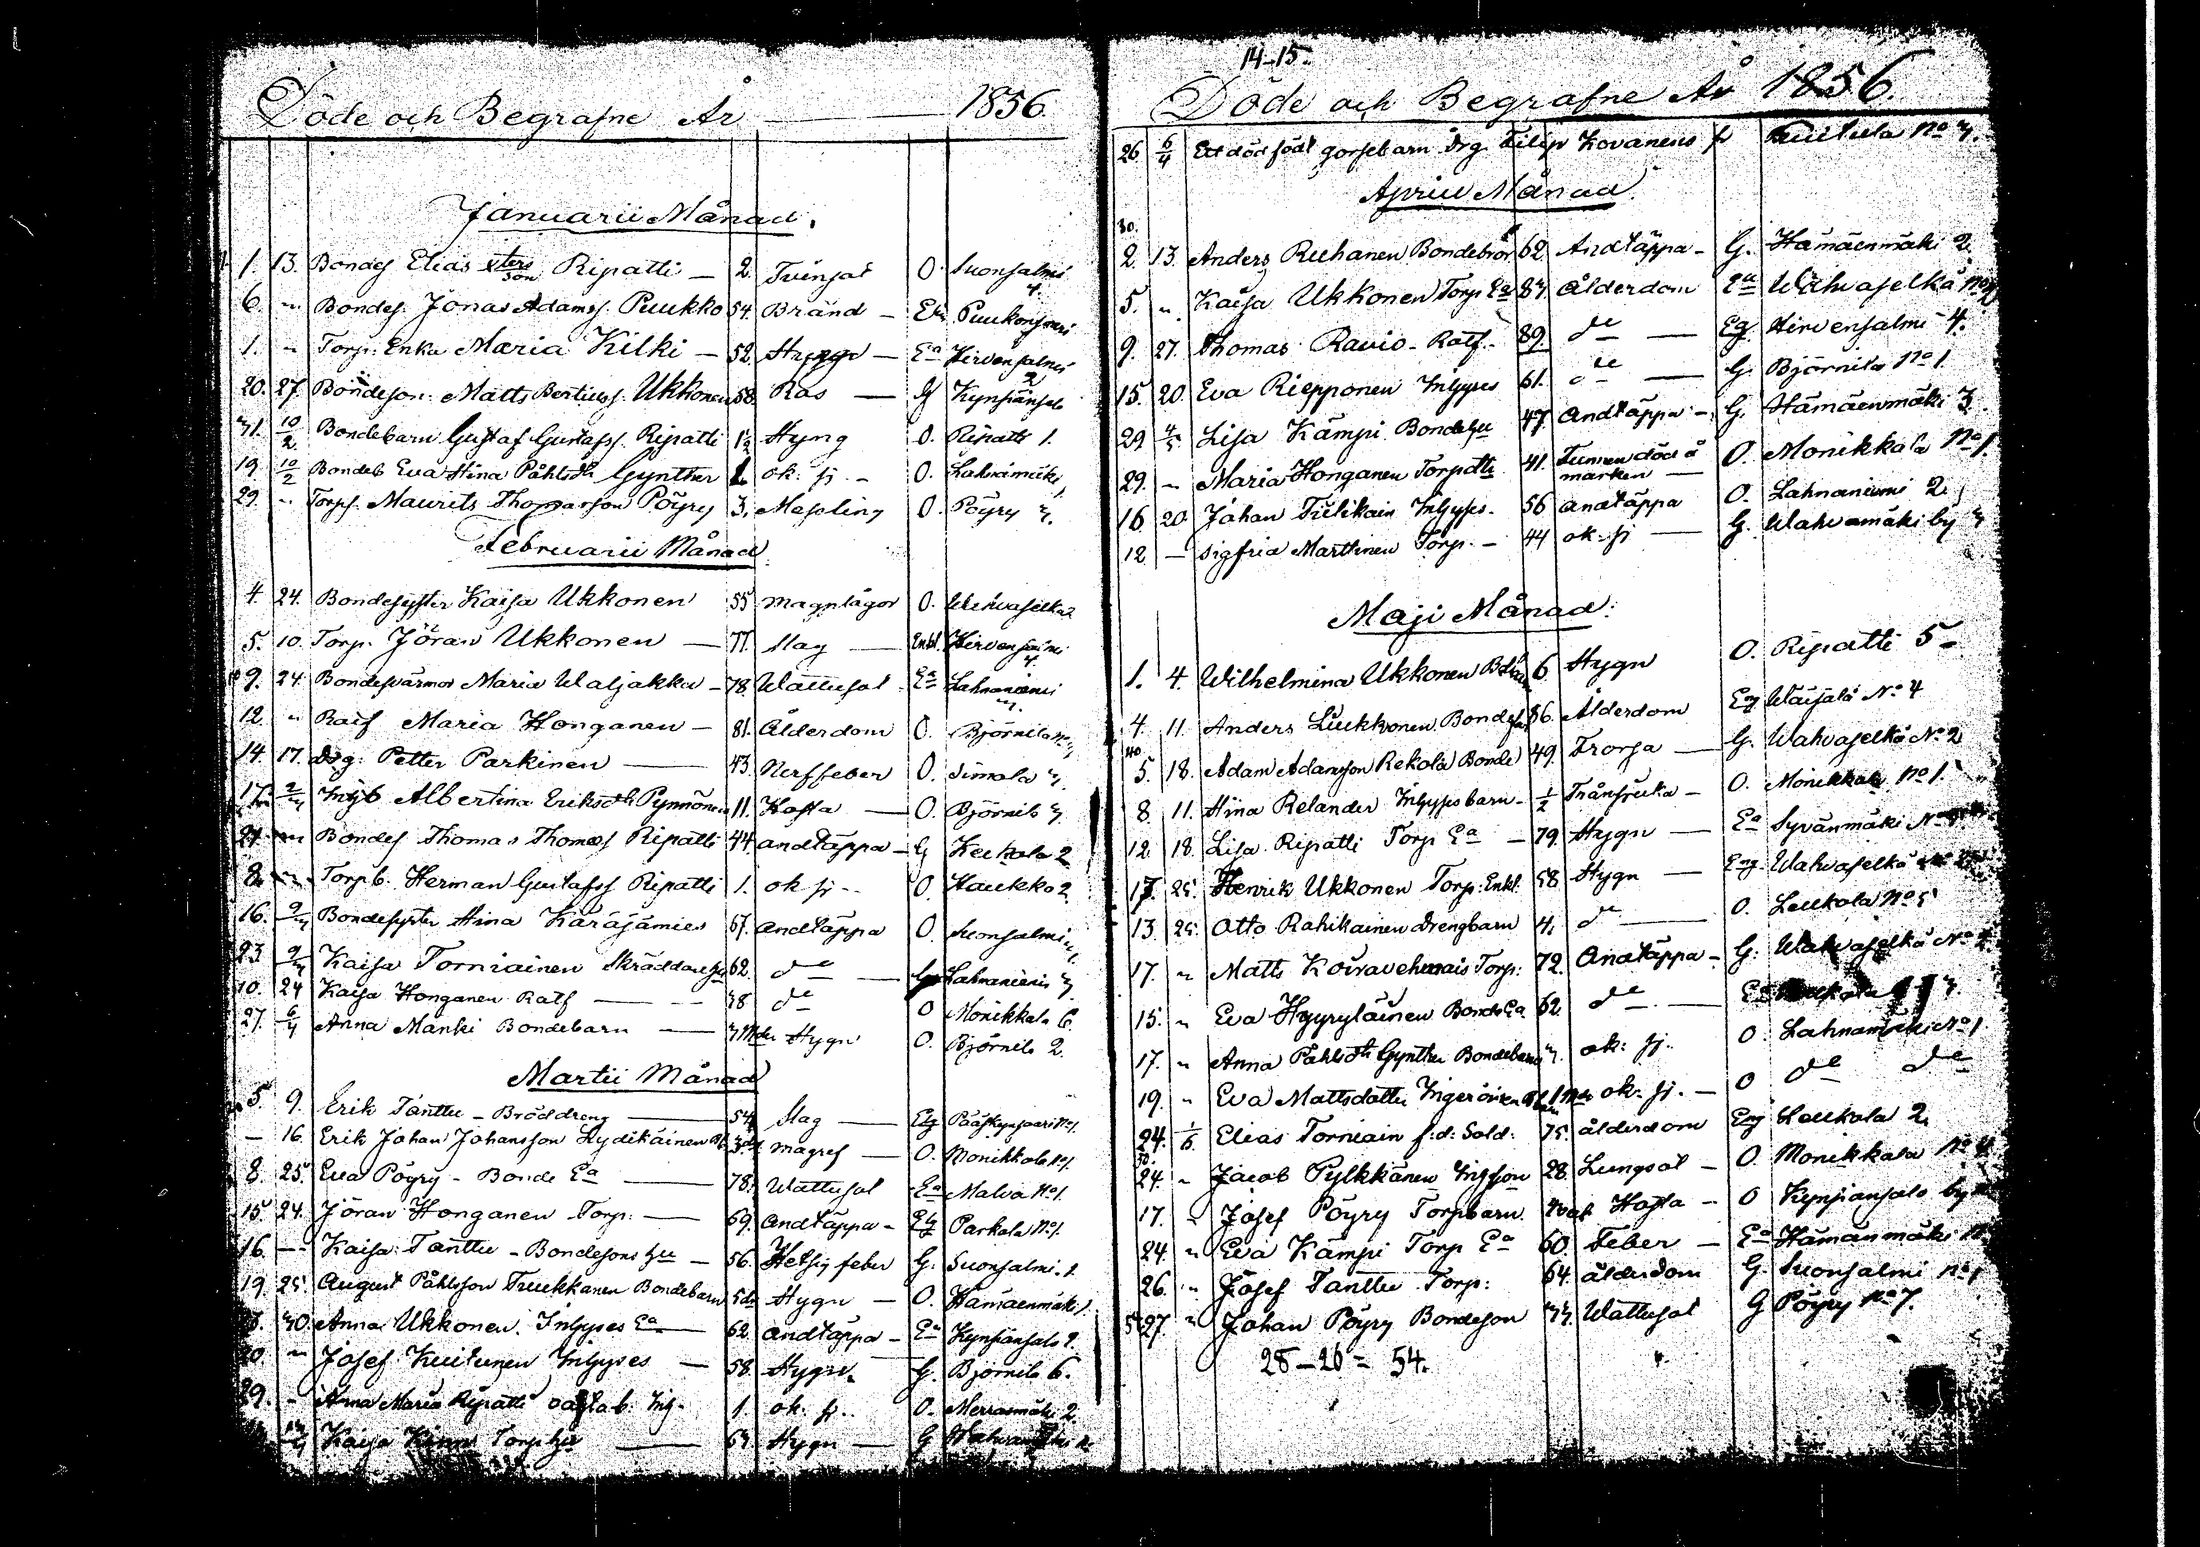 Döde och Begrafne År 1856.
Januarii Månad.
1. 13. Bondes Elias Ripatti — 2. Tvinsot O. Suonsalmi 4.
6. " Bondes. Jonas Adamss. Puukko 54. Bränd — Puukonsaari
1. " Torp. Enka Maria Kilki — 52. Ea Hirvensalmi 2
20. 27. Bondeson. Matts Bertilss. Ukkonen 58. Ras — G Kynsiänsalo
31. 10/2 Bondebarn Gustaf Gustafss. Ripatti 1½ Hyng O. Ripatti 1.
19. 10/2 Bondeb Eva Stina Påhlsdtr Gynther ok: sj. - O. Lahnamäki
29. " Torps. Maurits Thomasson Pöyry 3. Messling O. Pöyry 3.
Februarii Månad
4. 24. Bondesyster Kaisa Ukkonen 55 magplågor O. Wahvaselkä 2
5. 10. Torp. Jöran Ukkonen — 77. Slag — Enkl. Hirvensalmi 4.
9. 24. Bondesvärmor Maria Waljakka — 78. Wattusot Ea Lahnaniemi
12. " Maria Honganen — 81. Ålderdom O. Björnilä
14. 17. Drg: Petter Parkinen — 43. Nerffeber O. Simola 3.
Albertina Eriksdtr Pynnönen 11. Hosta — O. Björnilä 3
Bondes Thomas Thomass Ripatti 44. andtäppa — G Keckola 2
8. Torpb. Herman Gustafss Ripatti 1. ok sj - - O. Haukko 2
16. 9/3 Bondesyster Stina Käräjämies 67. andtäppa O. Suonsalmi
23 9/3 Kaisa Torniainen Skräddarehu 62. de — Lahnaniemi 3
10. 24 Kaisa Honganen Rotf — 78 de O Monikkala 6.
27. 6/4 Anna Manki Bondebarn — Hygn O. Björnilä 2.
Martii Månad
5. 9. Erik Tanttu — Bröddreng — 54 Slag — Eg Pääskynsaari No 1.
— 16. Erik Johan Johansson Lydikäinen magref — O. Monikkala No 1.
8. 25. Eva Pöyry — Bonde Ea — 78. Wattusot — Ea Malva No 1.
15 24. Jöran Honganen Torp: — 69. andtäppa — Parkola No 1.
16. — Kaisa Tanttu — Bondesons hu — 56. Hetsig feber G. Suonsalmi. 1.
19. 25. August Påhlsson Truukkanen Bondebarn Hygn — O. Hämäenmäki 1.
30. Anna Ukkonen. Inhyses Ea — 62. andtäppa — Ea Kynsiänsalo 2.
20. " Josef Kuitunen Inhyses — 58. Hygn. G. Björnilä 6.
29. " Anna Maria Ripatti 1. ok: sj.. O. Merrasmäki 2.
Kaisa Kinn Torphu — Hygn — G
14-15.
Döde och Begrafne År 1856.
26 6/4 Ett dödfödt gossebarn Drg. Filip Kovanens No 3.
April Månad.
30.
2. 13. Anders Ruhanen Bondebror 62. Andtäppa — G. Hämäenmäki 2.
5. " Kaisa Ukkonen Torp Ea 83. Ålderdom Ea Wahvaselkä
9. 27. Thomas Ravio — Rotf. 89. de — Eg Hirvensalmi 4.
15. 20. Eva Riepponen Inhyses 61. de — G. Björnilä No 1.
29 4/5 Lisa Kämpi Bondehu 47. andtäppa — G. Hämäenmäki 3.
29. " Maria Honganen Torpdtr 41. Funnen död å marken — O. Monikkala No 1.
16 20 Johan Tulikain Inhyses. 56 andtäppa O. Lahnaniemi 2.
12 — Sigfrid Marttinen Torp. — 44 ok: sj — G. Wahvamäki by 3
Maji Månad.
1. 4. Wilhelmina Ukkonen 6. Hygn O. Ripatti 5
4. 11. Anders Luukkonen Bondefar 86. Ålderdom Eg Waisälä No 4
40
5. 18. Adam Adamsson Rekola Bonde 49. Frossa — G. Wahvaselkä No 2
8 11. Stina Relander Inhyses barn — ½ Trånsjuka — O. Monikkala No 1.
12. 18. Lisa Ripatti Torp Ea — 79. Hygn — Ea Syvänmäki
17. 25. Henrik Ukkonen Torp. Enkl. 58 Hygn — Eng. Wahvaselkä
13 25. Otto Rahikainen Drengbarn 4. de — O. Leukola No 5
17. " Matts Koiravehmais Torp: 72. Andtäppa — G. Wahvaselkä
15. " Eva Hyyryläinen Bonde Ea 62. de — Ea
17. " Anna Påhlsdtr Gynther Bondebarn ok: sj. O Lahnamäki No 1
19. " Eva Mattsdotter Ingeröinen ok: sj. — O de de
24. 1/6. Elias Torniain f:d: Sold: 75. ålderdom Eg Leukola 2.
50.
24. " Jacob Pylkkänen Inhyson 28. Lungsot — O Monikkala No 4
17. " Josef Pöyry Torpbarn. Hosta — O Kynsiansalo by
24 " Eva Kämpi Torp Ea 60. Feber — Ea Hämänmäki
26. " Josef Tanttu Torp: 64. ålderdom G. Suonsalmi No 1
27. " Johan Pöyry Bondeson 34. Wattusot G Pöyry No 7.
28 — 26 = 54.